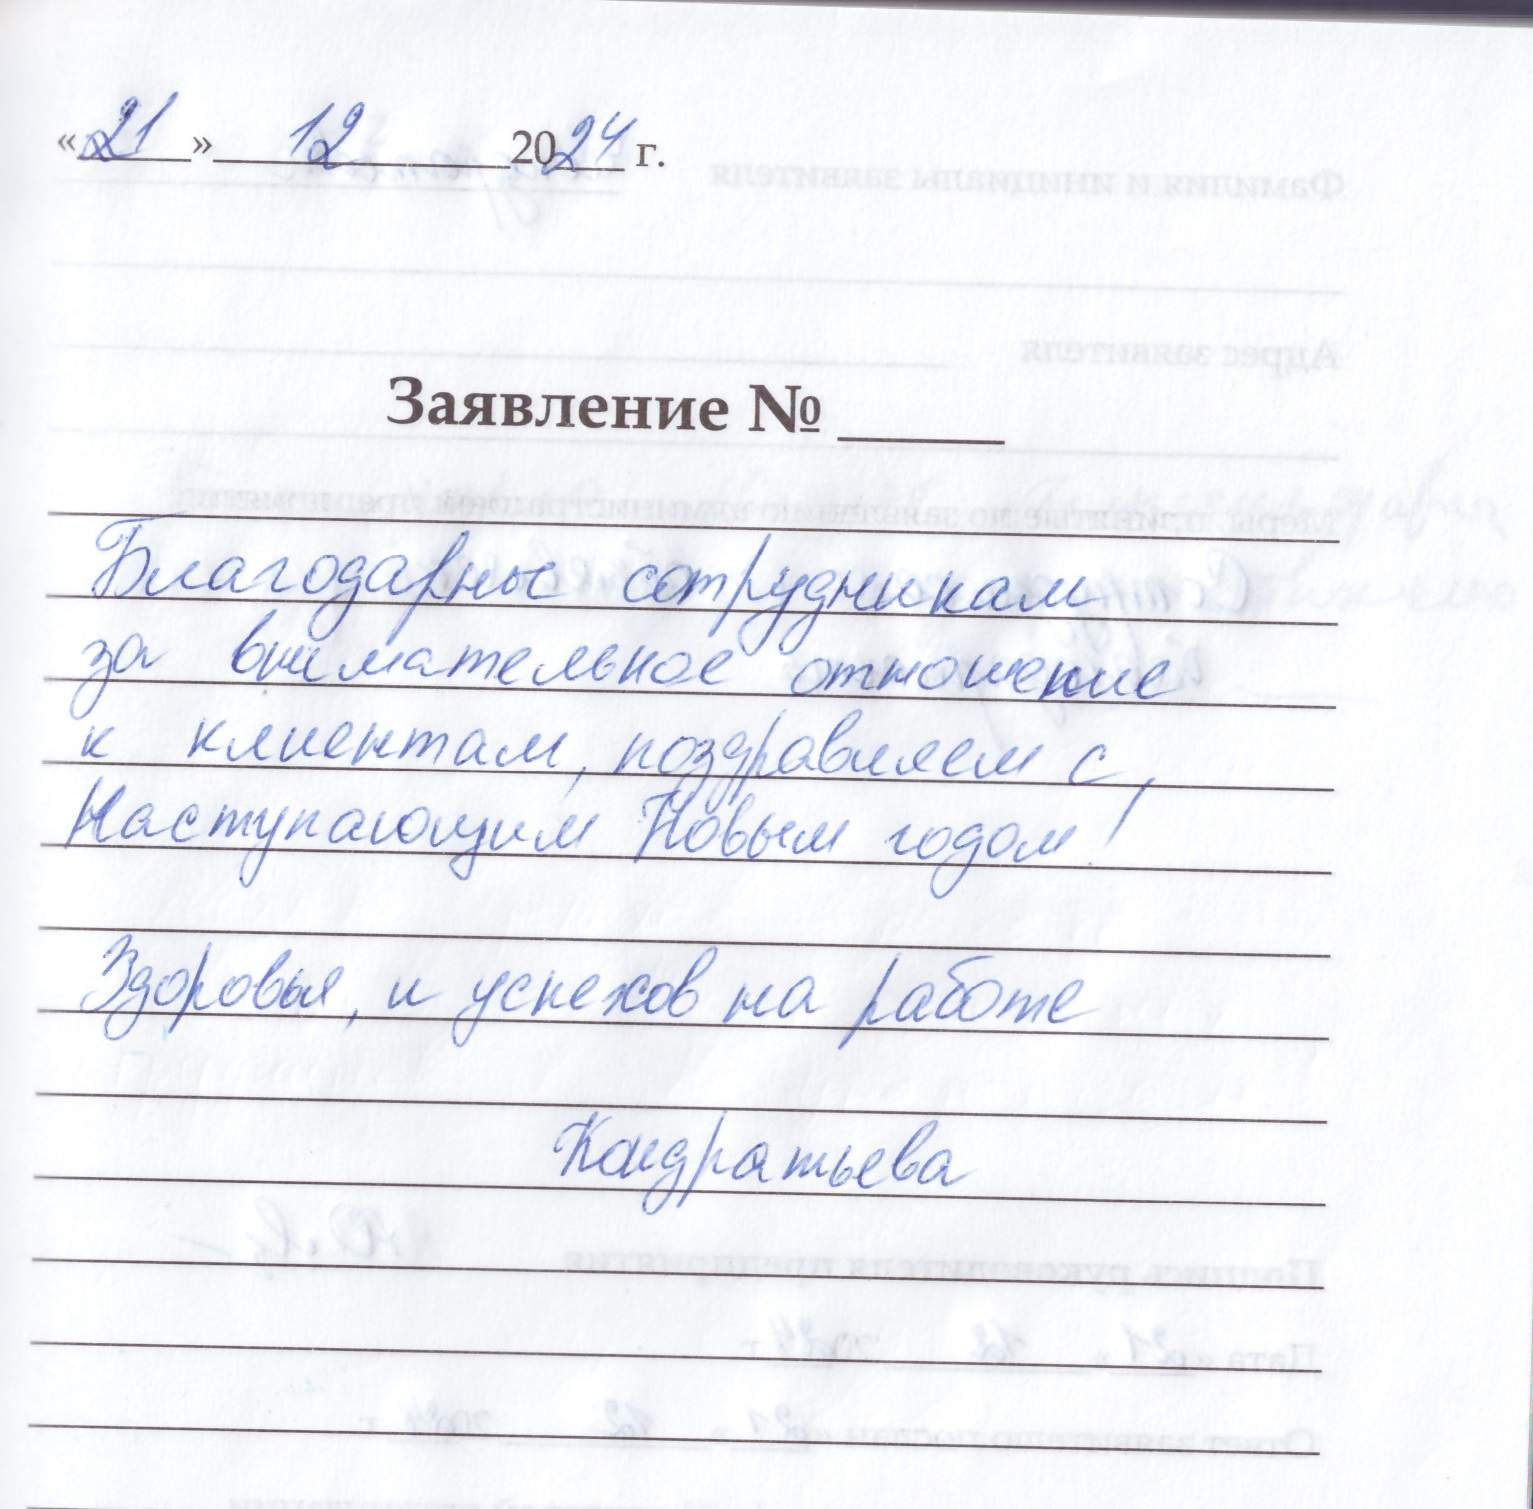 «21» 12 2024 г.
Заявление №
Благодарны сотрудникам
за внимательное отношение
к клиентам, поздравляем с
Наступающим Новым годом!
Здоровья, и успехов на работе
Кондратьева